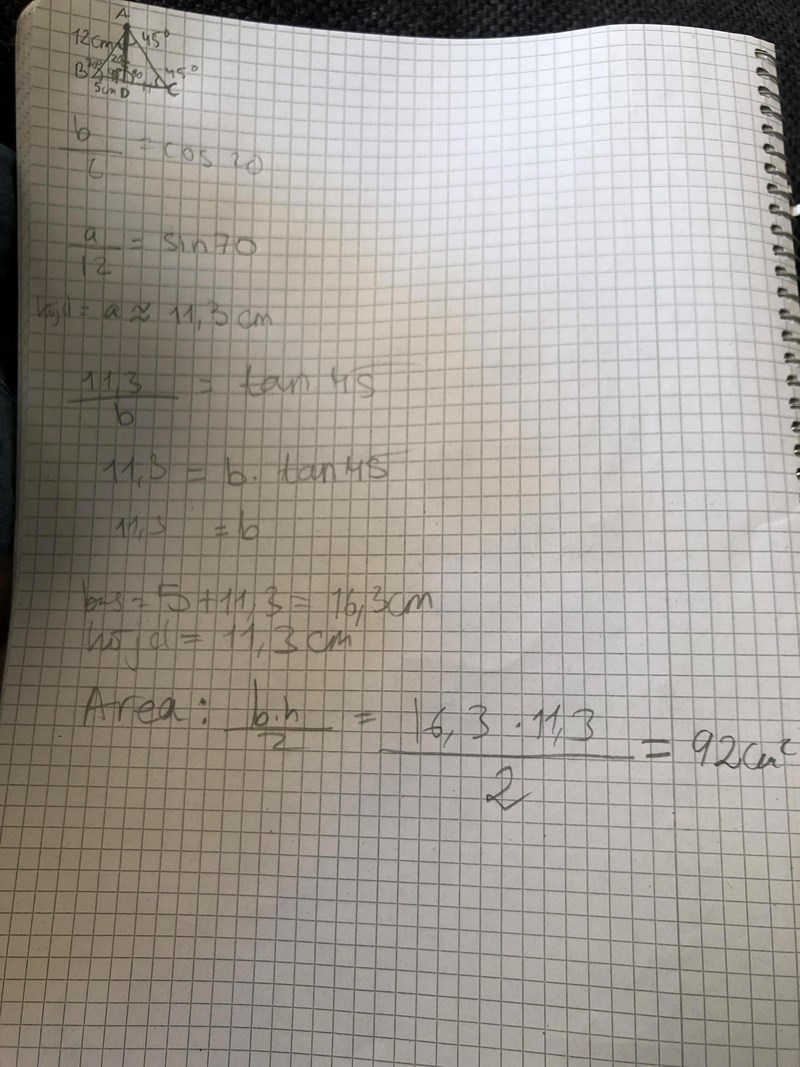 A
12cm 45°
B 45°
5cm D C
b = cos 20
a/12 = sin70
höjd = a ≈ 11,3 cm
11,3/b = tan 45
11,3 = b · tan45
11,3 = b
bas = 5+11,3 = 16,3cm
höjd = 11,3 cm
Area: b·h/2 = 16,3 · 11,3/2 = 92cm²